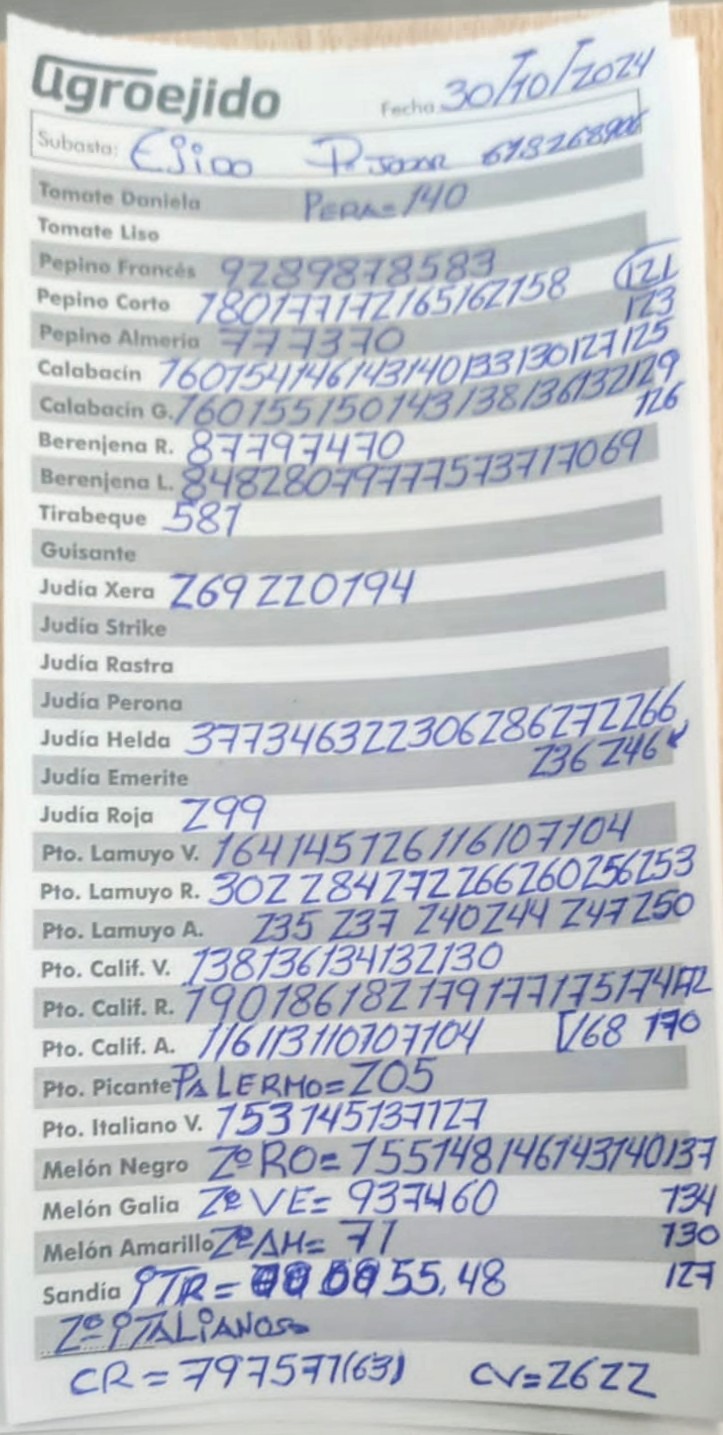 agroejido Fecha 30/10/2024
Subasta: Ejido
Tomate Daniela PERA=140
Tomate Liso
Pepino Francés 9289878583
Pepino Corto 180177172165162158 121
123
Pepino Almería 777370
Calabacín 160154146143140133130127125
Calabacín G. 160155150143138136132129
126
Berenjena R. 87797470
Berenjena L. 848280797775737170 69
Tirabeque 581
Guisante
Judía Xera 269 220194
Judía Strike
Judía Rastra
Judía Perona
Judía Helda 377346322306286272266
236 246
Judía Emerite
Judía Roja 299
Pto. Lamuyo V. 164145126116107104
Pto. Lamuyo R. 302284272266260256253
Pto. Lamuyo A. 235 237 240244 247250
Pto. Calif. V. 138136134132130
Pto. Calif. R. 190186182179177175174172
Pto. Calif. A. 116113110107104 168 170
Pto. Picante PALERMO=205
Pto. Italiano V. 153145137127
Melón Negro 2º RO=155148146143140137
Melón Galia 2º VE= 937460 134
Melón Amarillo 2º AM= 71 130
Sandía iTR= 55,48 127
2º iTALiANOS
CR=797577(63) CV=2622